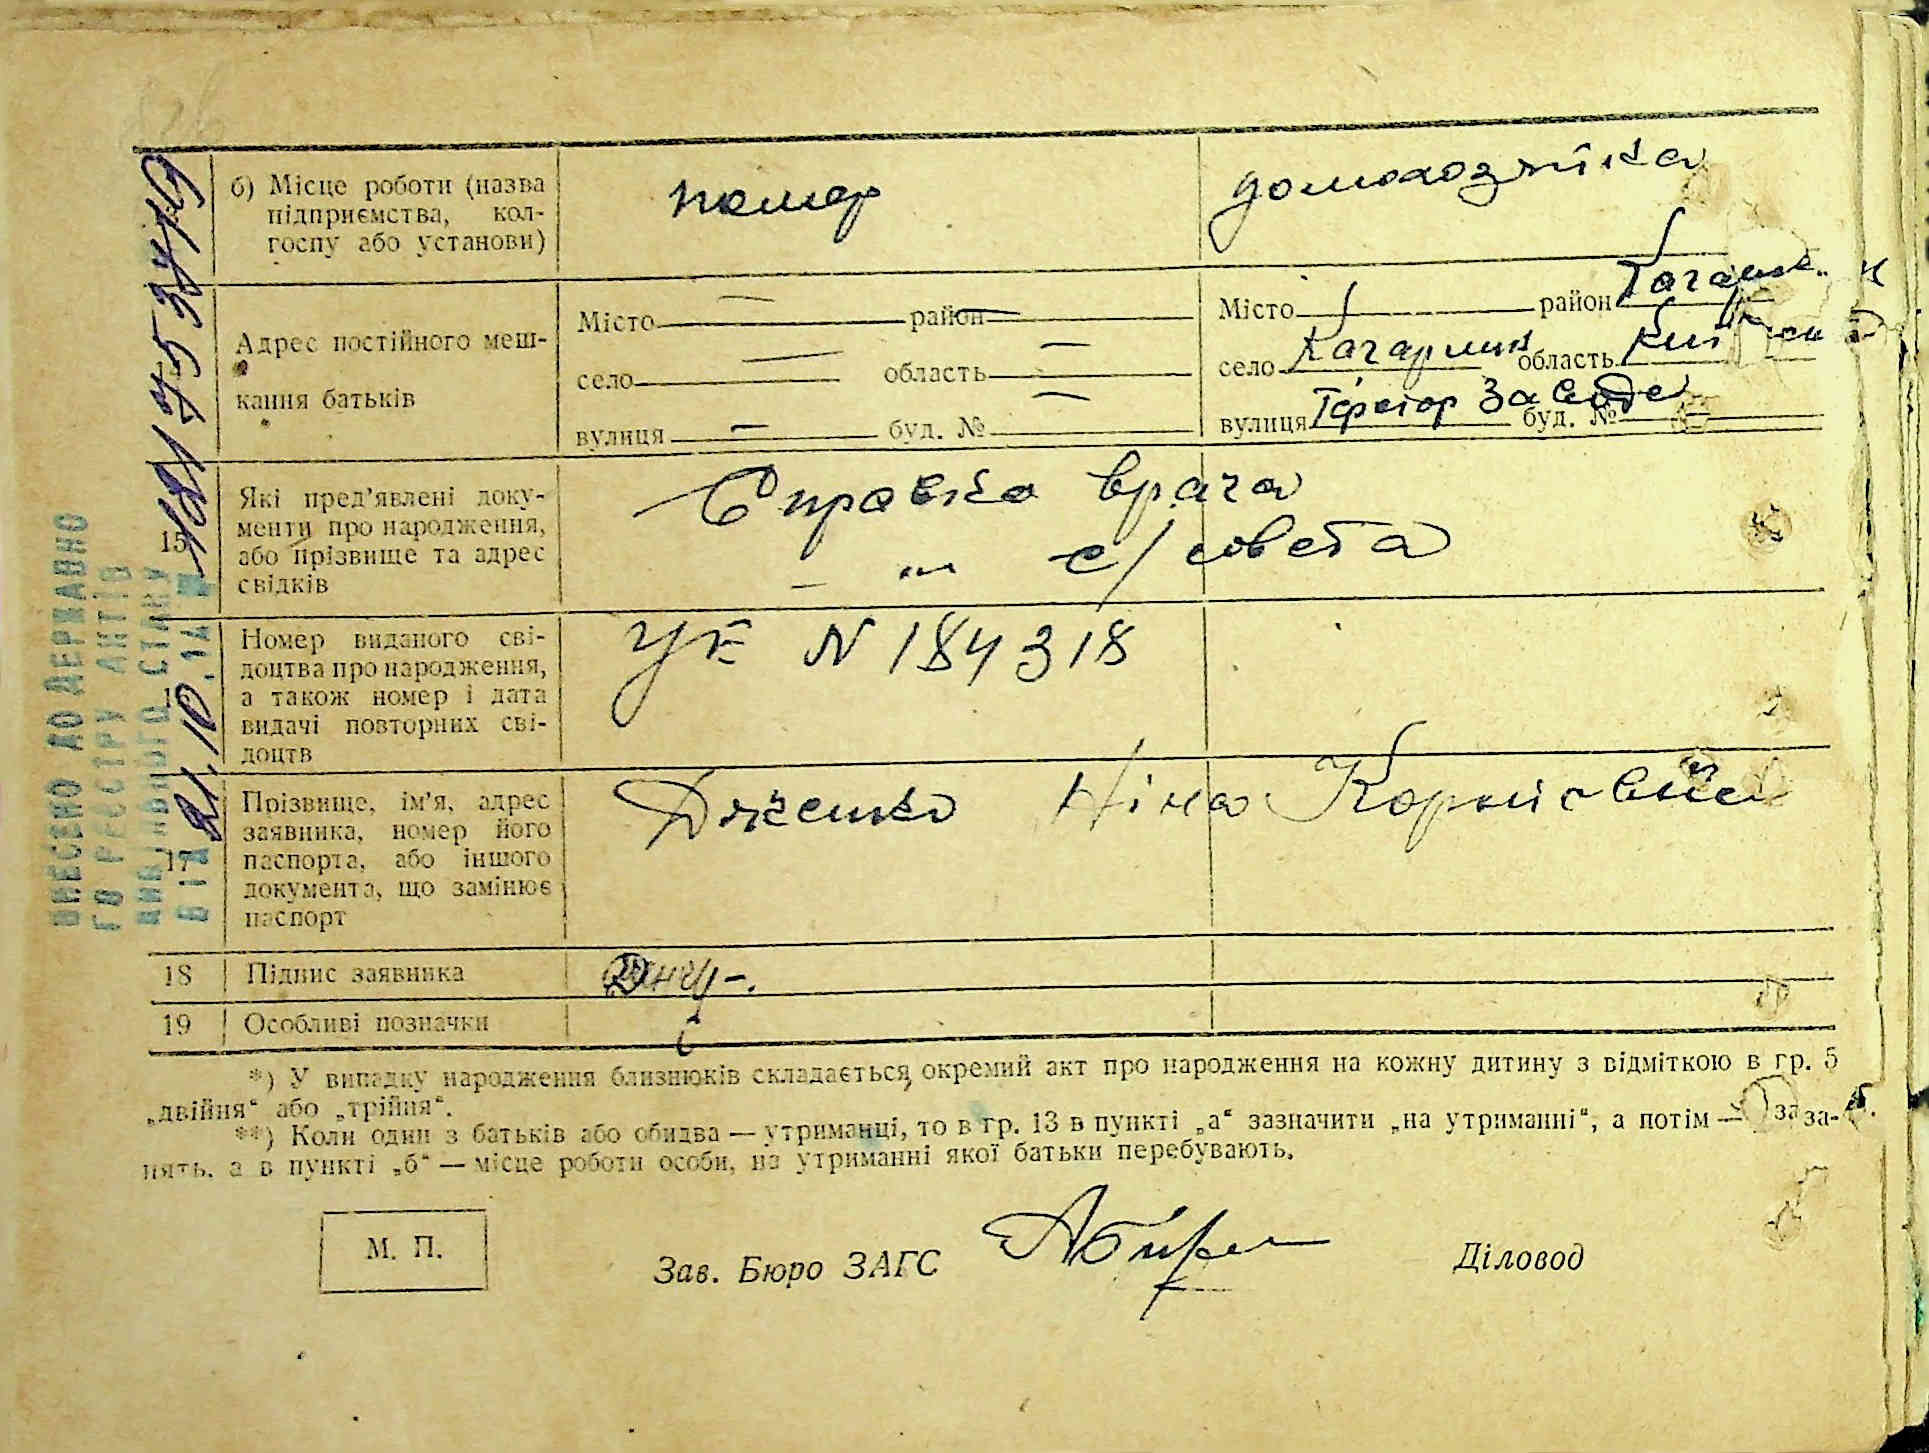 б) Місце роботи (назва
підприємства, кол-
госпу або установи)
помер
домохозяйка
Адрес постійного меш-
кання батьків
Місто — район —
село — область —
вулиця — буд. № —
Місто район
село Кагарлик область
вулиця буд. №
15
Які пред’явлені доку-
менти про народження,
або прізвище та адрес
свідків
Справка врача
— „ — с/совета
16
Номер виданого сві-
доцтва про народження,
а також номер і дата
видачі повторних сві-
доцтв
УЕ N 184318
17
Прізвище, ім’я, адрес
заявника, номер його
паспорта, або іншого
документа, що замінює
паспорт
Дяченко Ніна
18 Підпис заявника
19 Особливі позначки
*) У випадку народження близнюків складається окремий акт про народження на кожну дитину з відміткою в гр. 5
„двійня“ або „трійня“.
**) Коли один з батьків або обидва — утриманці, то в гр. 13 в пункті „а“ зазначити „на утриманні“, а потім — за-
нять, а в пункті „б“ — місце роботи особи, на утриманні якої батьки перебувають.
М. П.
Зав. Бюро ЗАГС
Діловод
ВНЕСЕНО ДО ДЕРЖАВНО
ГО РЕЄСТРУ АКТІВ
ЦИВІЛЬНОГО СТАНУ
ВІД 21.10 ЗА №